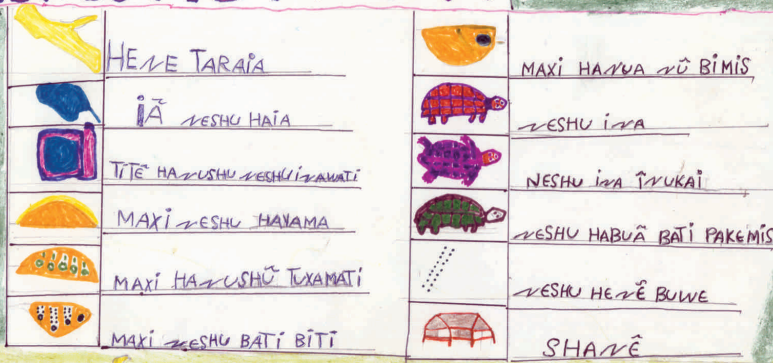 HENE TARAIA
IÃ NESHU HAIA
TITẼ HANUSHU NESHU INAWATI
MAXI NESHU HAYAMA
MAXI HANUSHŨ TUXAMATI
MAXI NESHU BATI BITI
MAXI HANUA NŨ BIMIS
NESHU INA
NESHU INA ĨNUKAI
NESHU HABUÃ BATI PAKEMIS
NESHU HENẼ BUWE
SHANẼ